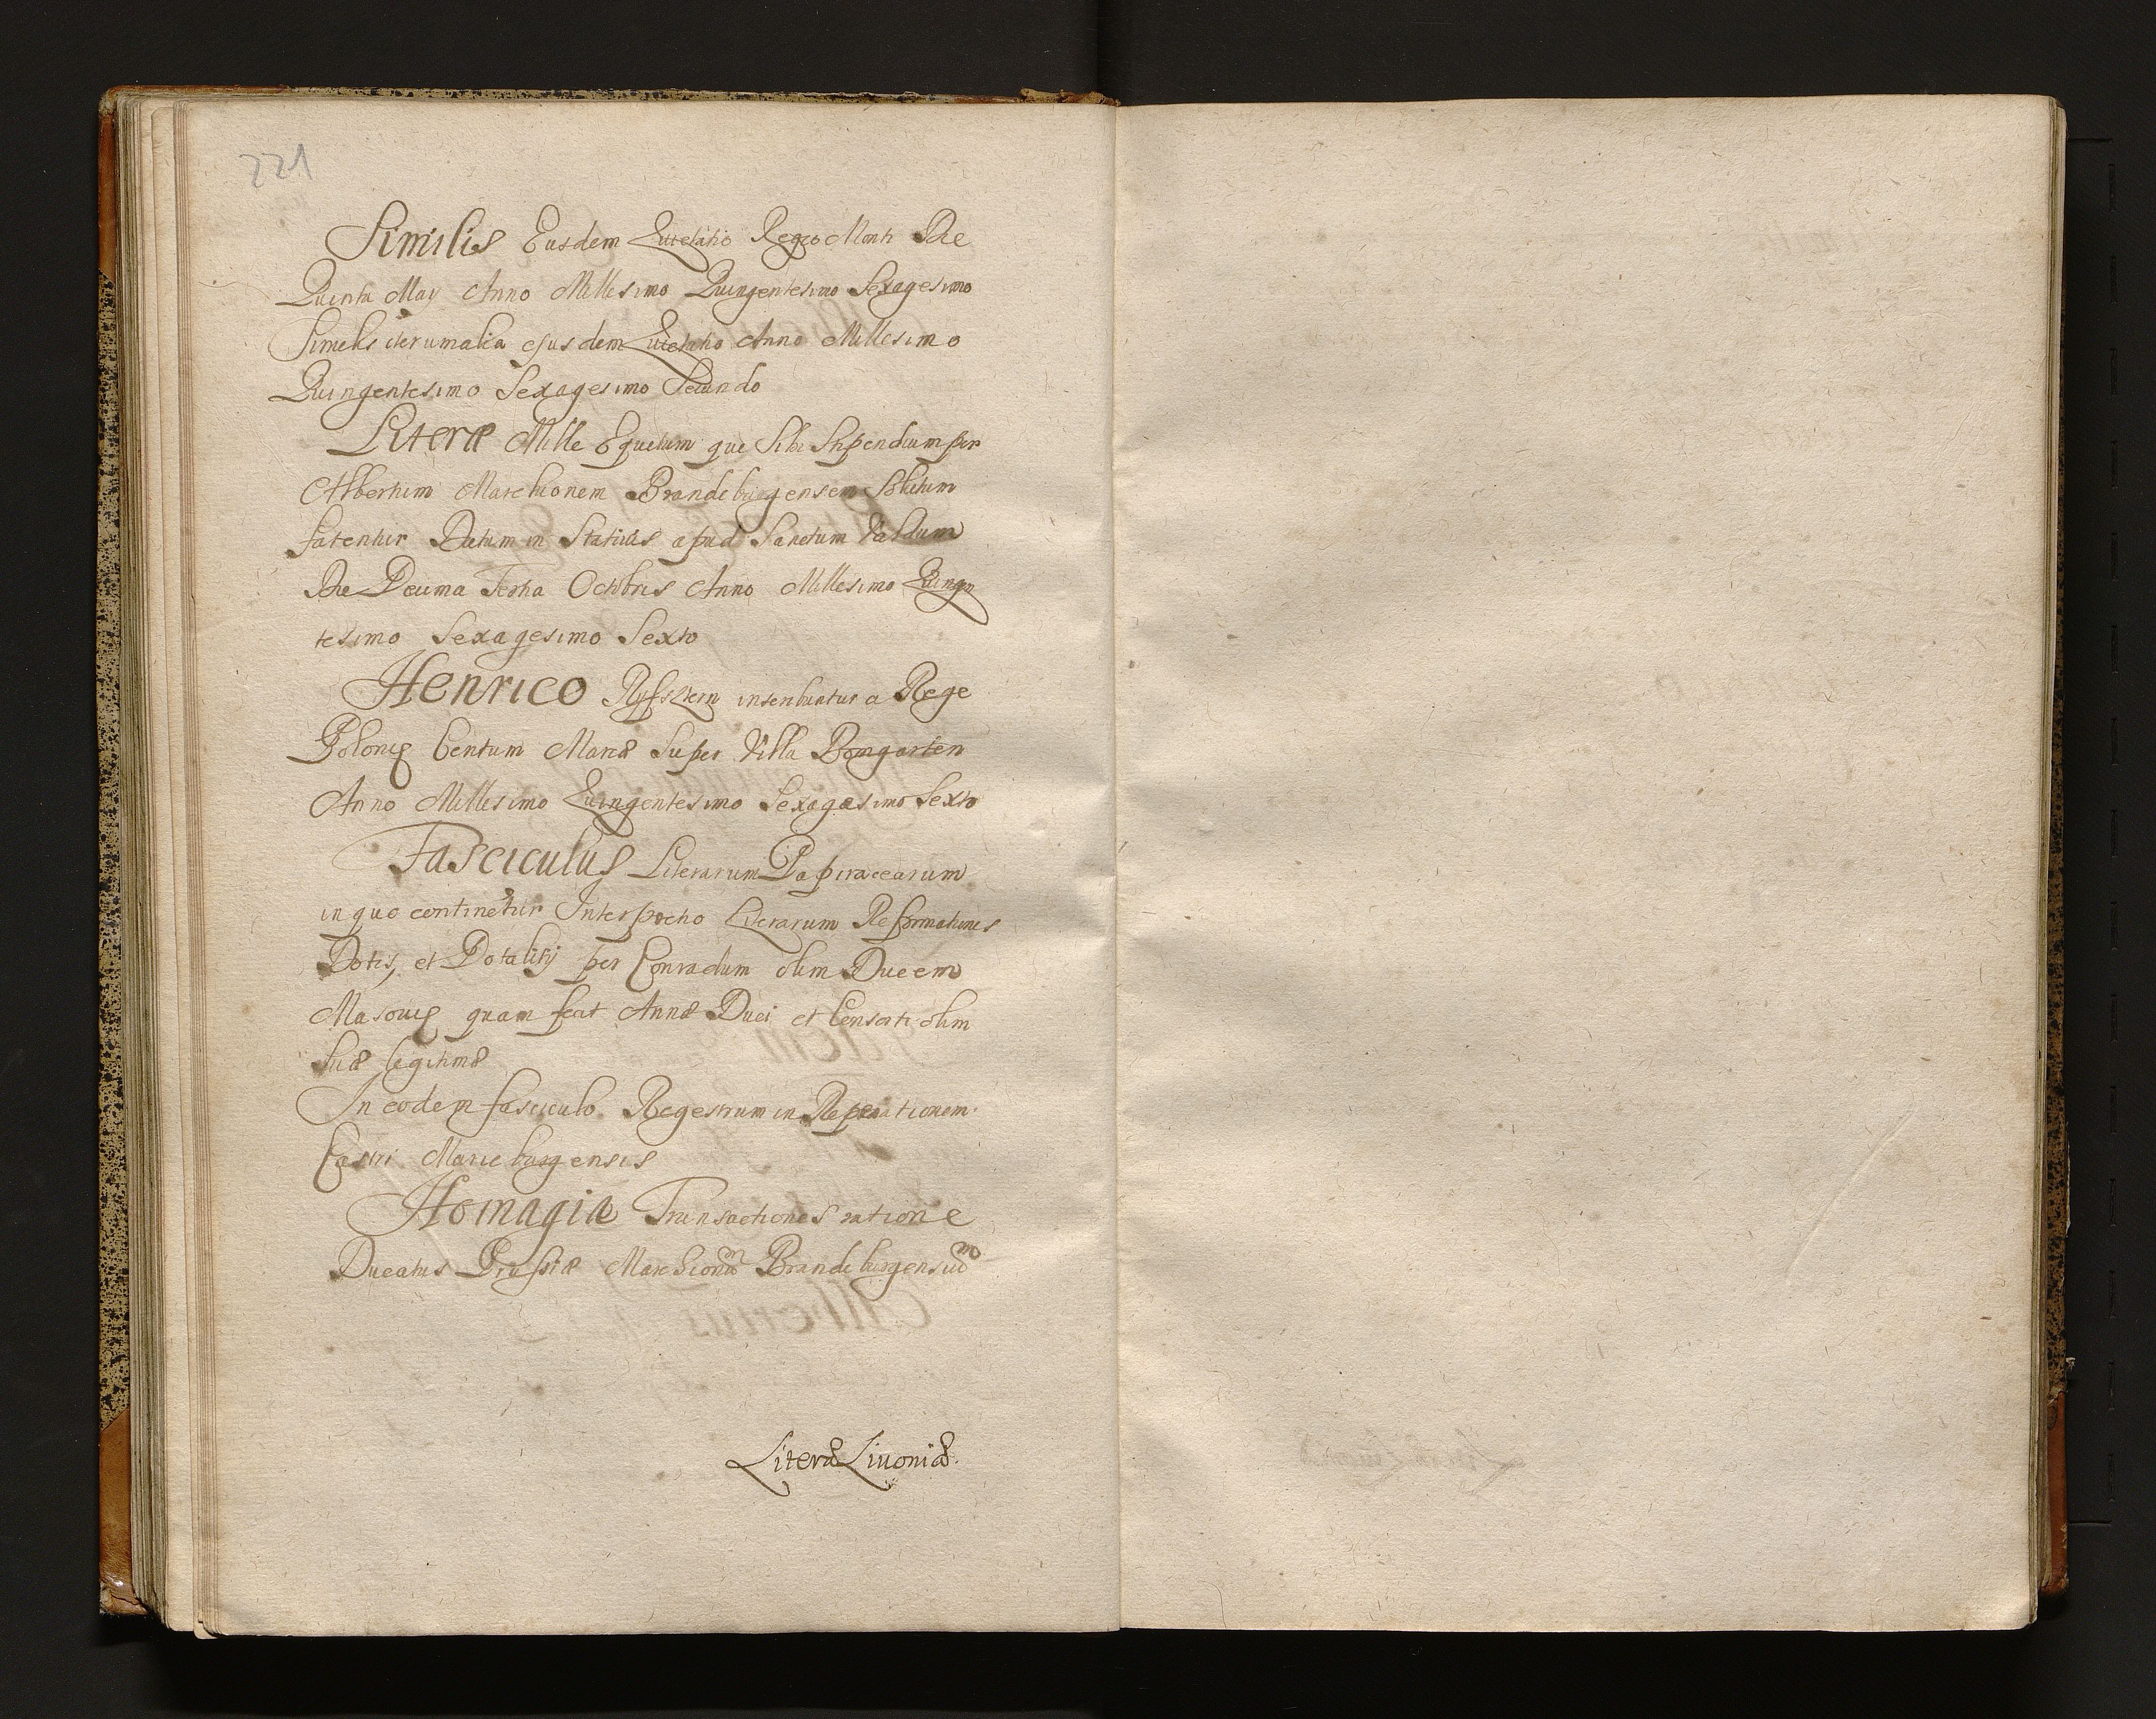 221
Similis Eusdem Quietatio Regio Monti Die
Quinta May Anno Millesimo Quingentesimo Sexagesimo
Similis iterum alia ejusdem Quietatio Anno Millesimo
Quingentesimo Sexagesimo Secundo
Literæ Mille Equitum que Sibi Stipendium per
Albertum Marchionem Brandeburgensem Solutum
fatentur Datum in Stativis apud Sanctum Valdum
Die Decima Tertia Octobris Anno Millesimo Quingen
tesimo Sexagesimo Sexto
Henrico inscribuntur a Rege
Polonię Centum Marcæ Super Villa Bomgarten
Anno Millesimo Quingentesimo Sexagesimo Sexto
Fasciculus Literarum Papiracearum
in quo continetur Literarum Reformationis
Dotis, et Dotalitij per Conradum olim Ducem
Masovię quam fecit Annæ Duci et Consorti olim
Suæ legitimæ
In eodem fasciculo Regestrum in Reparationem
Castri Marieburgensis
Homagia Transactiones ratione
Ducatus Prussiæ Marchionū Brandeburgensiū
Literæ Livoniæ.